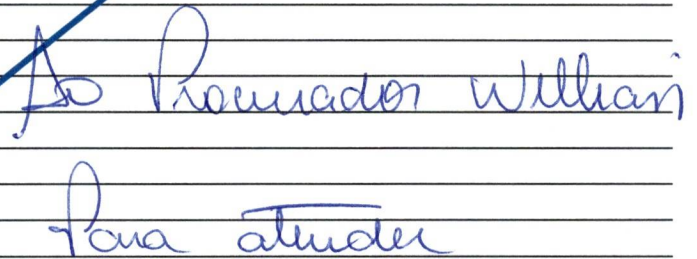 Ao Procurador Willian
Para atender